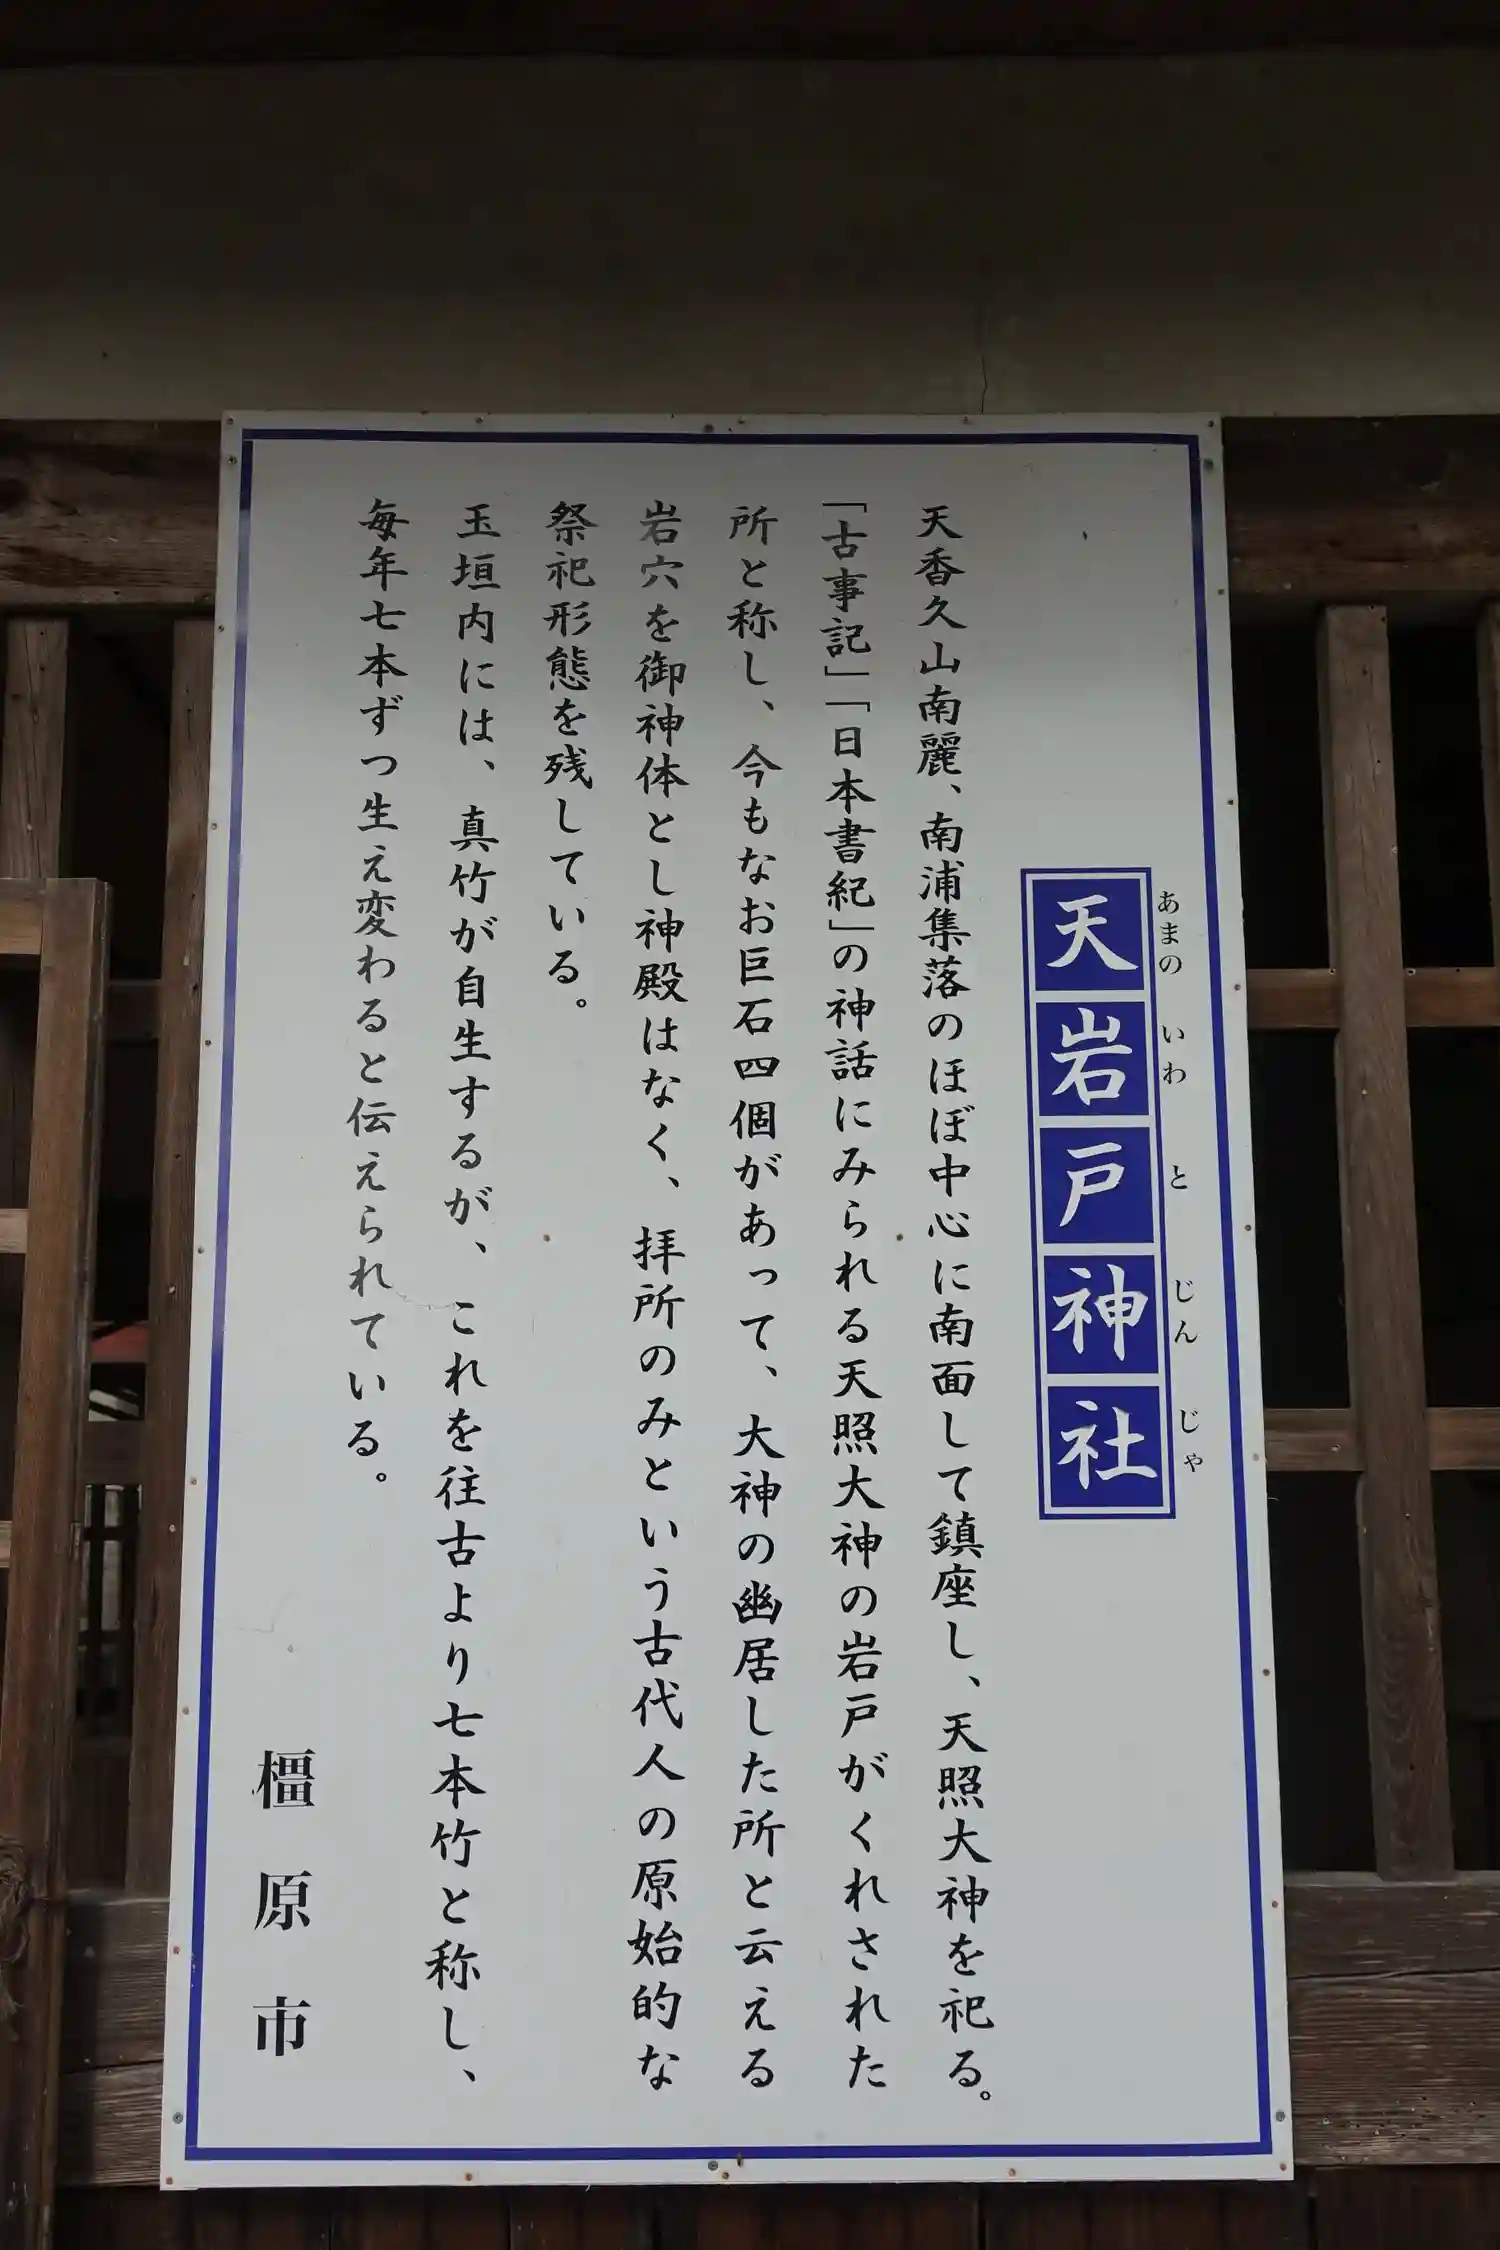 天岩戸神社
あまの いわ と じん じゃ
天香久山南麗、南浦集落のほぼ中心に南面して鎮座し、天照大神を祀る。
「古事記」「日本書紀」の神話にみられる天照大神の岩戸がくれされた
所と称し、今もなお巨石四個があって、大神の幽居した所と云える
岩穴を御神体とし神殿はなく、拝所のみという古代人の原始的な
祭祀形態を残している。
玉垣内には、真竹が自生するが、これを往古より七本竹と称し、
毎年七本ずつ生え変わると伝えられている。
橿原市